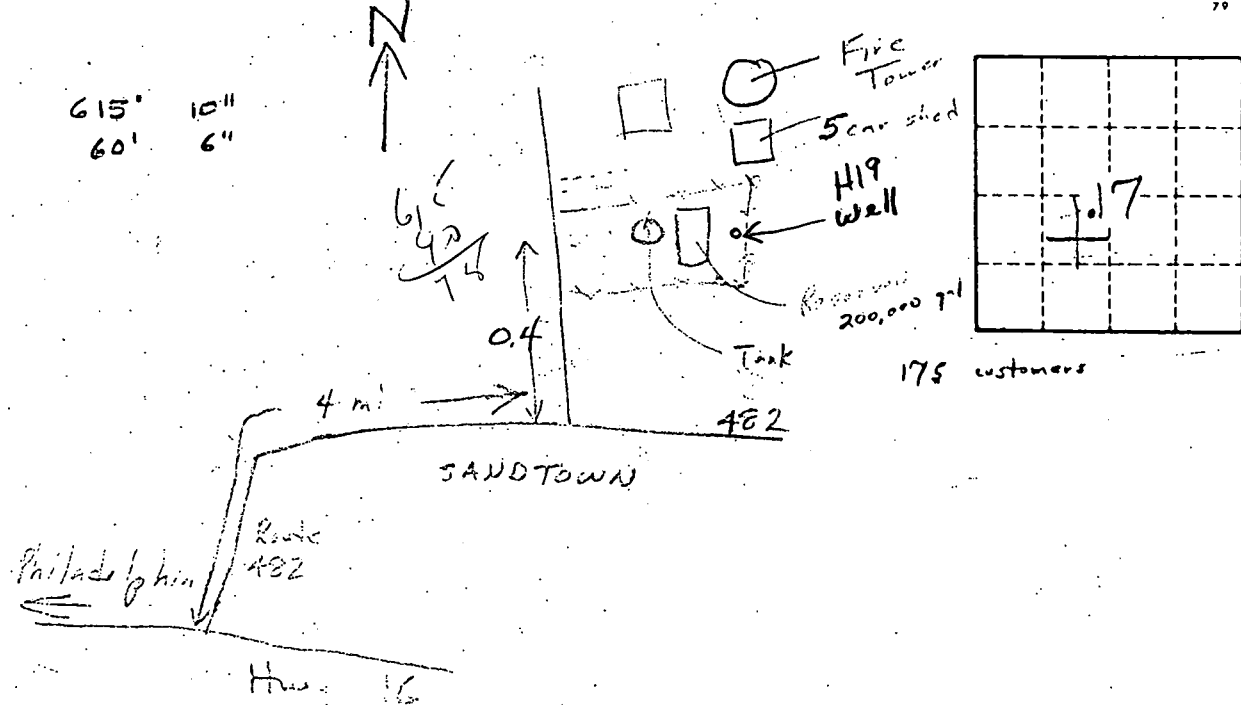 79
N
615' 10"
60' 6"
Fire
Tower
5 car shed
H19
well
Reservoir
200,000 gal
Tank
.17
175 customers
0.4
4 mi
482
SANDTOWN
Route
482
Philadelphia
Hwy 16